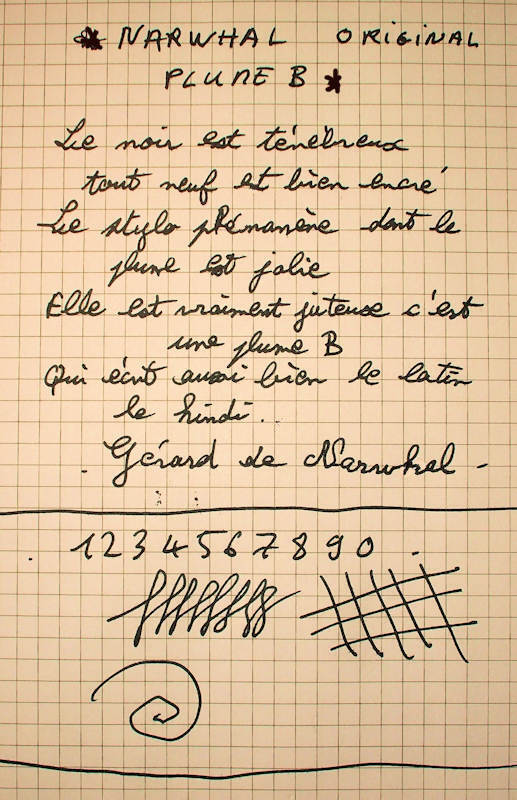 * NARWHAL ORIGINAL
PLUME B *
Le noir est ténébreux
tout neuf et bien encré
Le stylo phémanène dont le
plume est jolie
Elle est vraiment juteuse c'est
une plume B
Qui écrit aussi bien le latin
le hindi..
. Gérard de Narwhal -
. 1 2 3 4 5 6 7 8 9 0 .